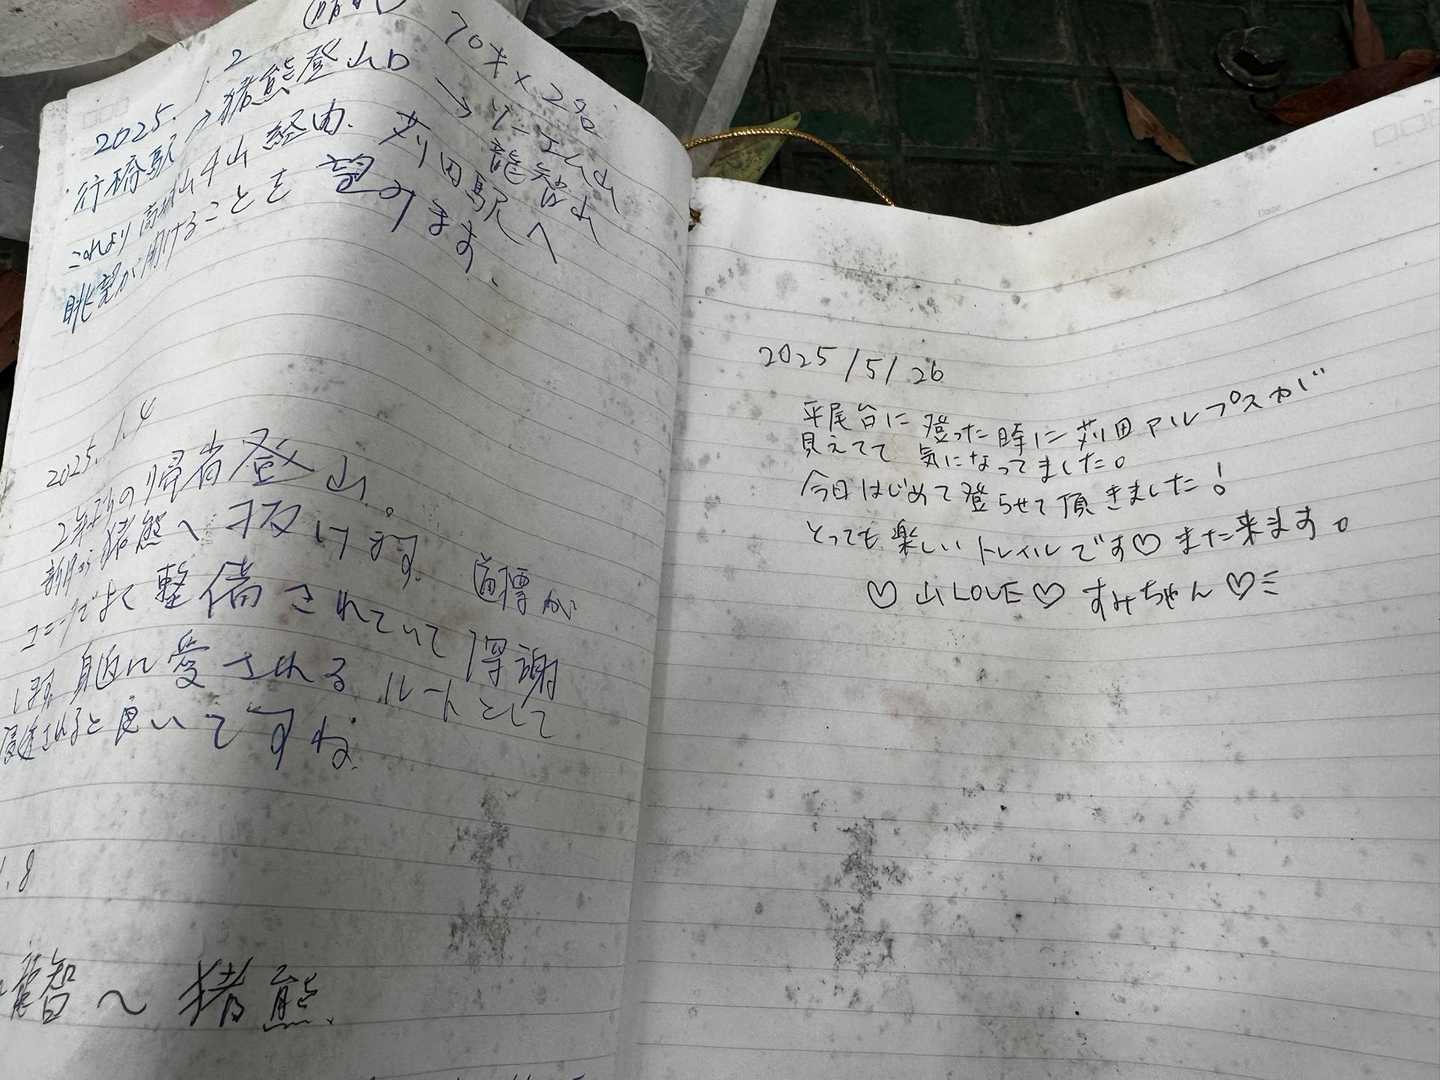 2025.1.2
70才×2名
行橋駅→猪熊登山口
→
龍智山
経由.苅田駅へ
これより
眺望が開けることを望みます、
2025.1.4
2年ぶりの帰省登山。
猪熊へ抜けます。道標が
整備されていて
します。身近に愛されるルートとして
されると良いですね.
.8
智〜猪熊.
Date
2025/5/26
平尾台に登った時に苅田アルプスが
見えてて気になってました。
今日はじめて登らせて頂きました!
とっても楽しいトレイルです♡また来ます。
♡山LOVE♡すみちゃん♡